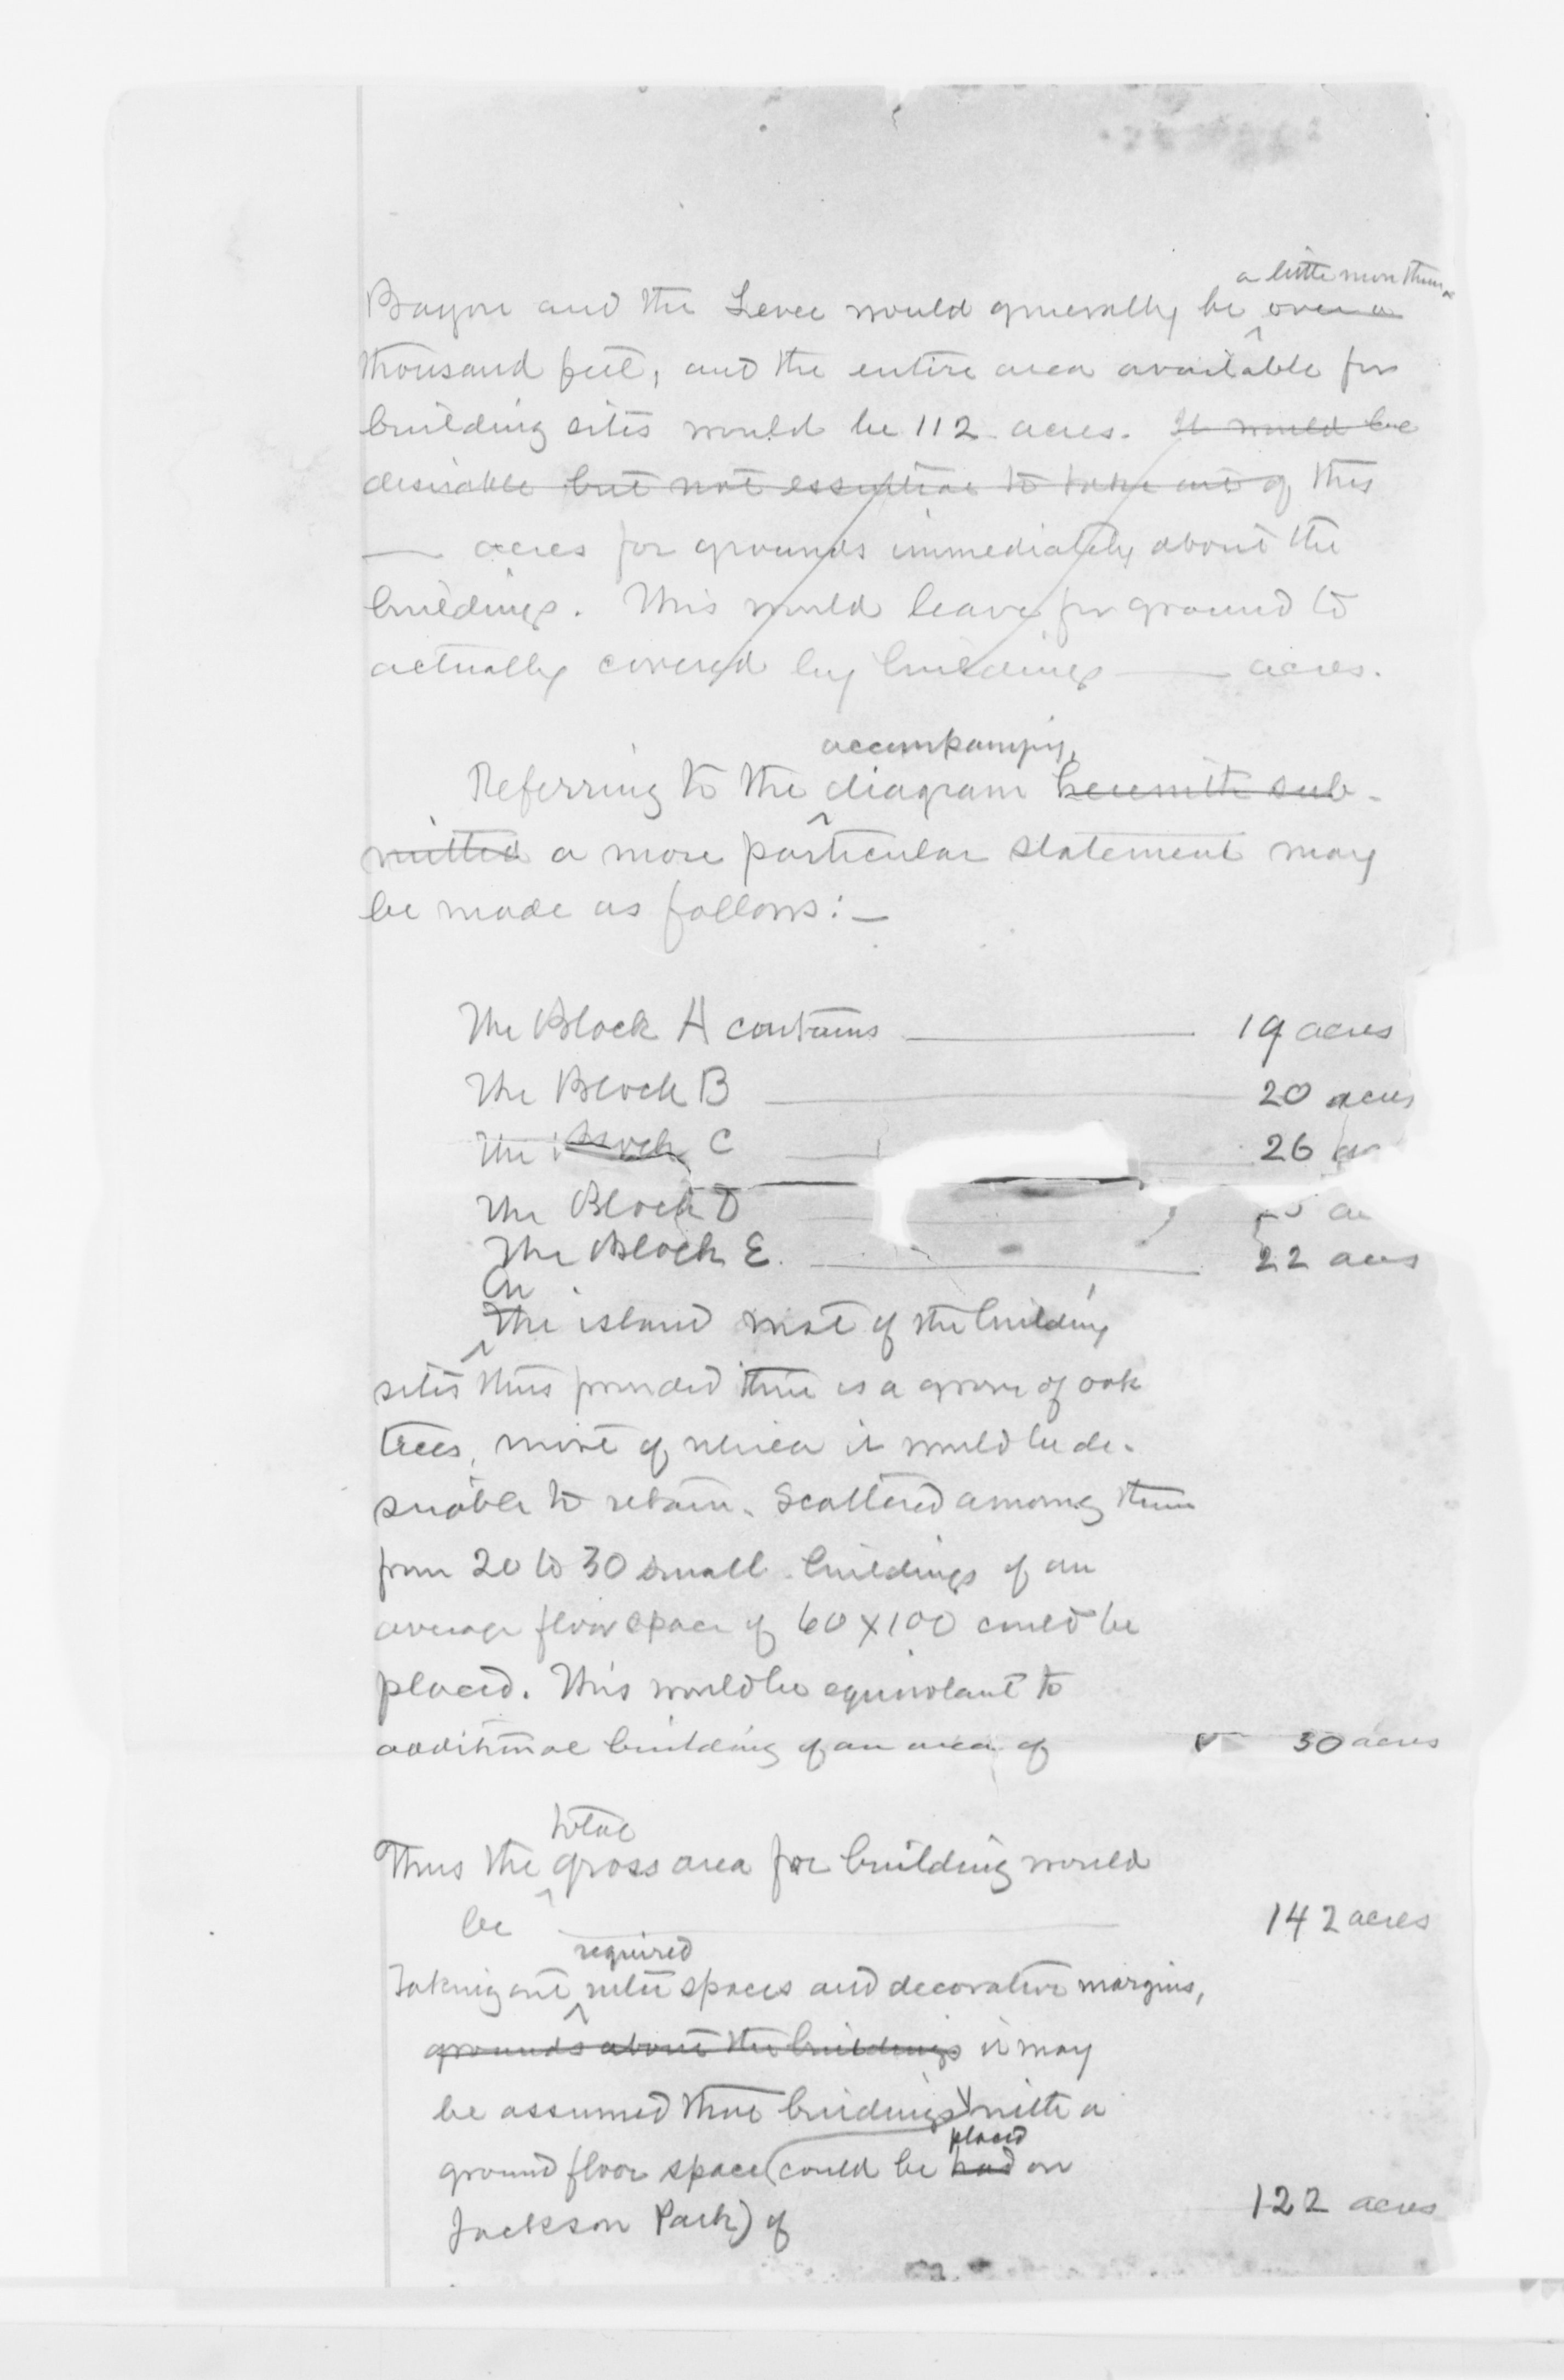 a little more than a
Bayou and the Levee would generally be over a
thousand feet, and the entire area available for
building sites would be 112 acres. It would be
desirable but not essential to take out of this
— acres for grounds immediately about the
buildings. This would leave for ground to
actually covered by buildings — acres.
accompanying
Referring to the diagram herewith sub-
mitted a more particular statement may
be made as follows:—
The Block A contains — 19 acres
The Block B — 20 acres
The Block C — 26
The Block D —
The Block E. — 22 acres
On
The island west of the building
sites thus provided there is a grove of oak
trees, most of which it would be de-
sirable to retain. Scattered among them
from 20 to 30 small buildings of an
average floor space of 60 x 100 could be
placed. This would be equivalant to
additional building of an area of 30 acres
total
Thus the gross area for building would
be — 142 acres
required
Taking out spaces and decorative margins,
grounds about the buildings it may
be assumed that buildings with a
placed
ground floor space (could be had on
Jackson Park) of 122 acres